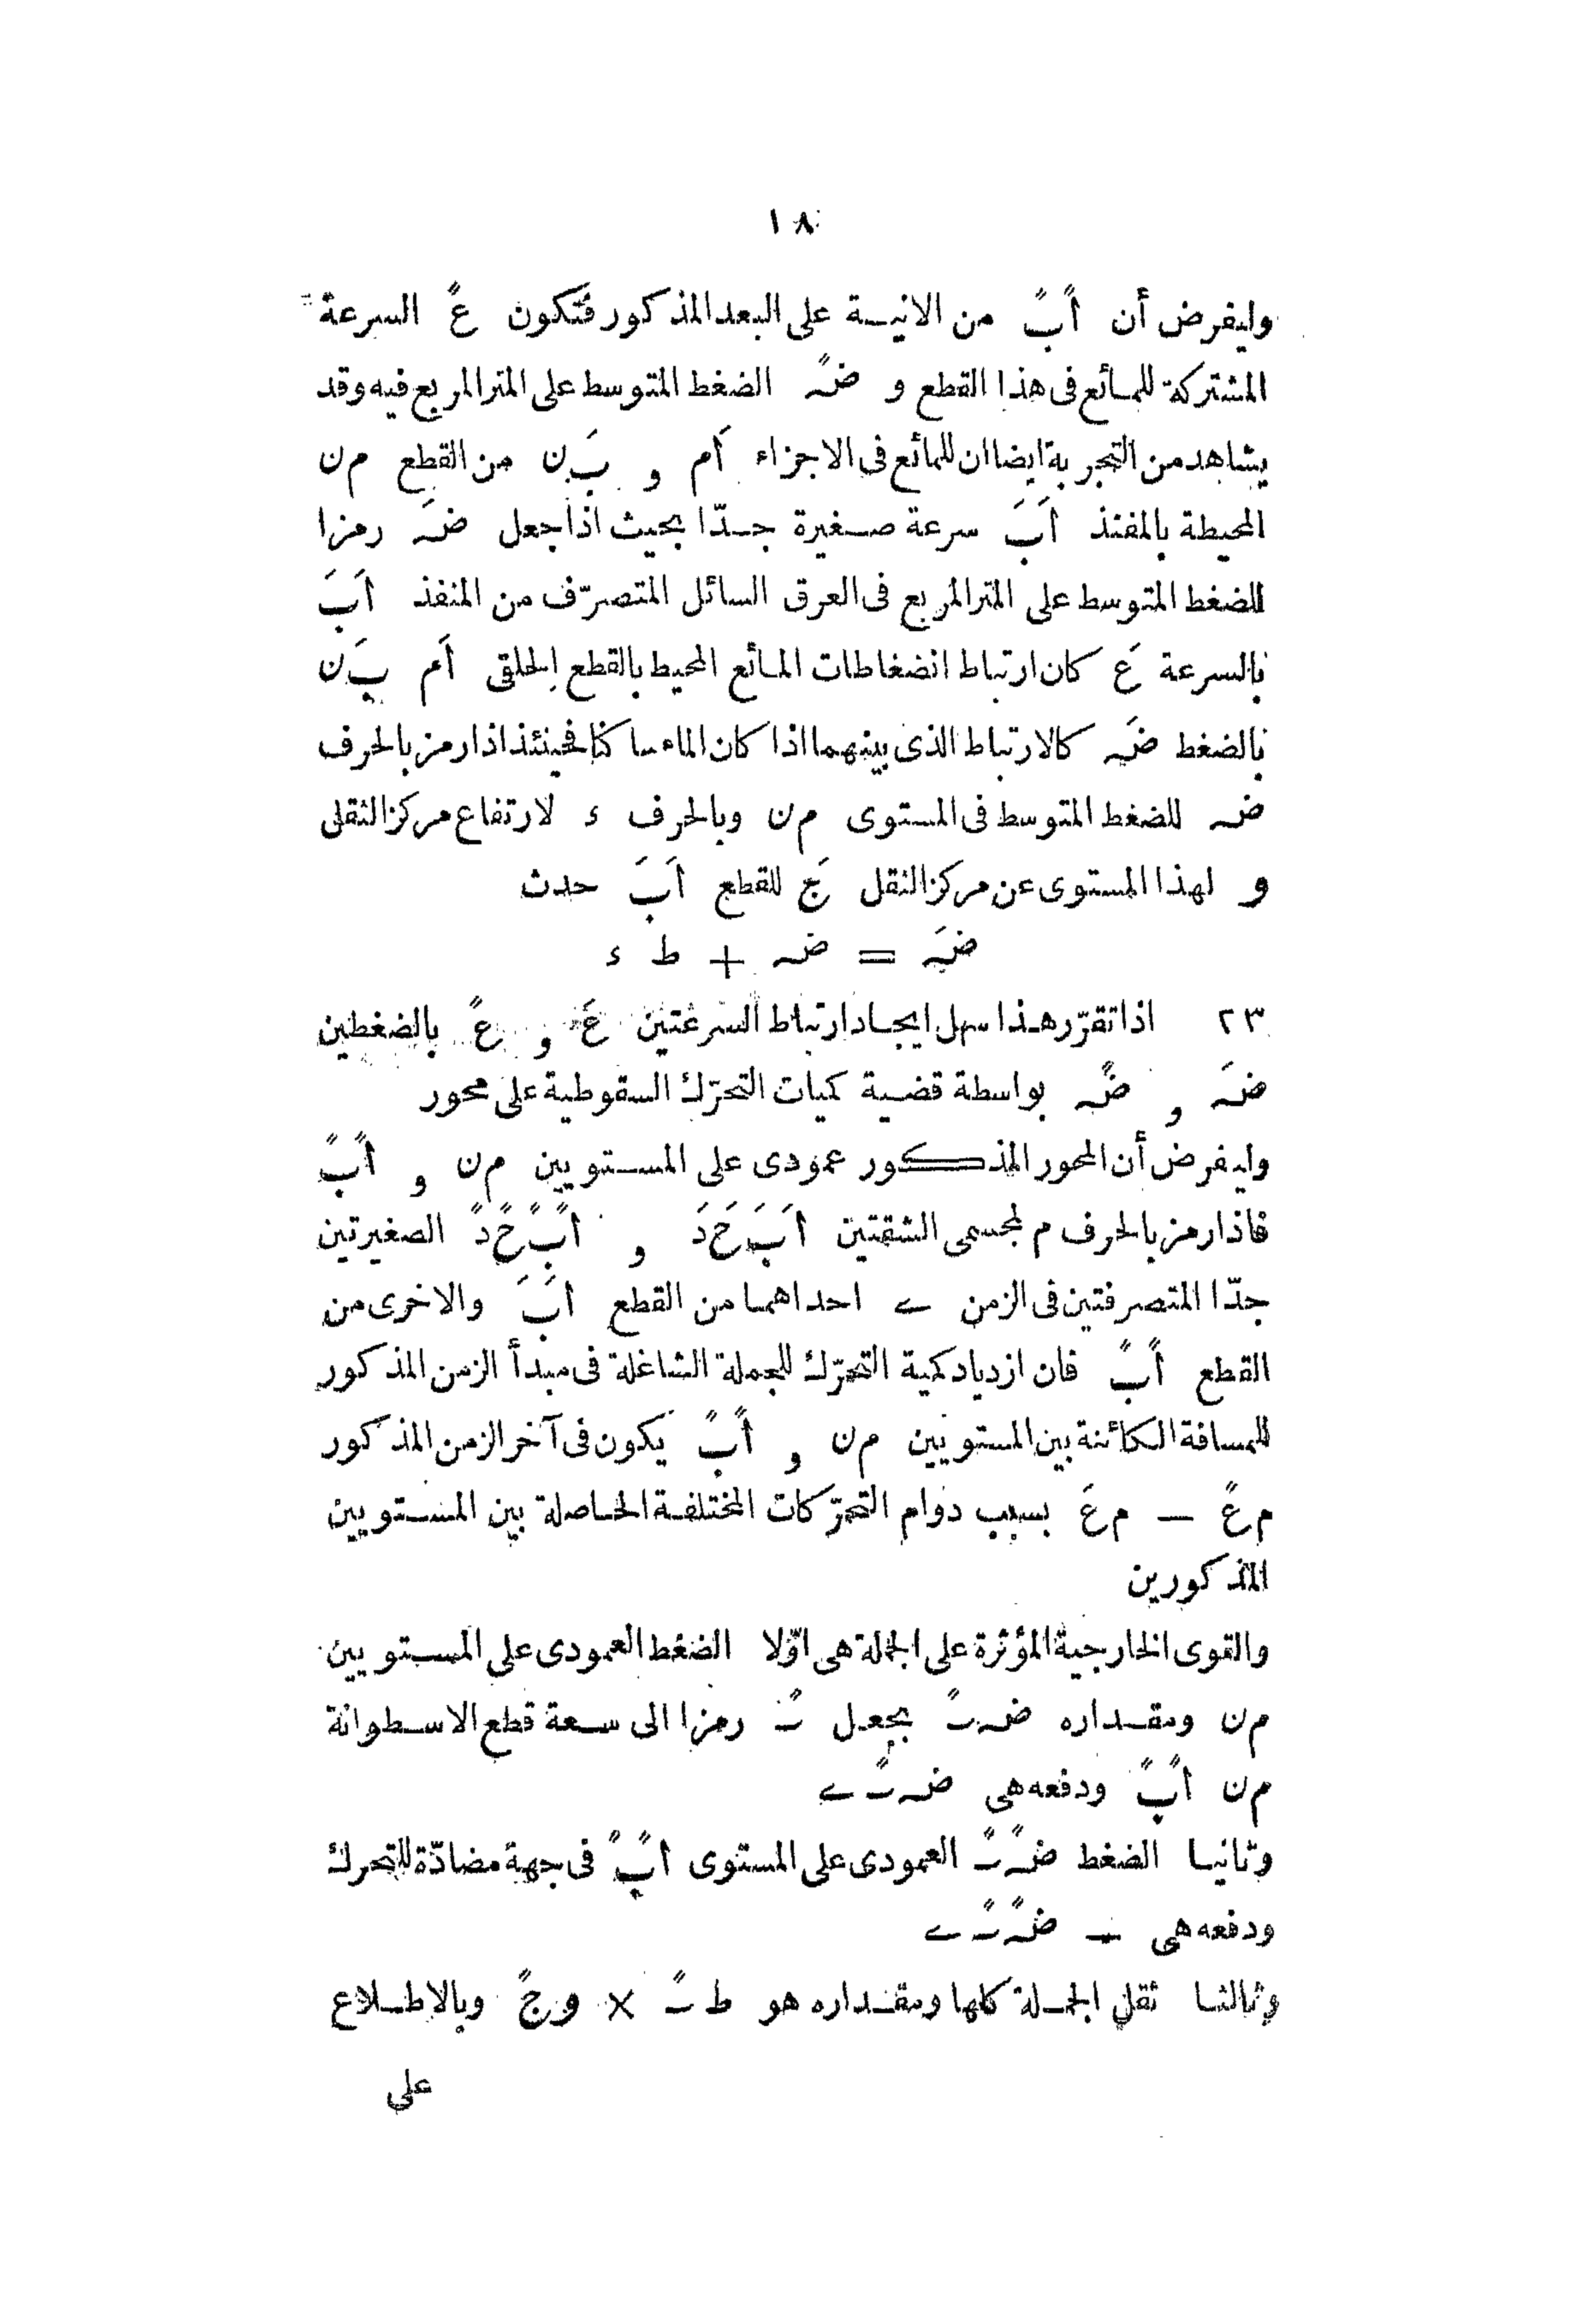 ١٨
وليفرض أن اً بً من الانيـة على البعد المذكور فتكون عً السرعة
المشتركة للمـائع فى هذا القطع و ضـہً الضغط المتوسط على المتر المربع فيه وقد
يشاهد من التجربة ايضا ان للمائع فى الاجزاء اَم و بَ ن من القطع م ن
المحيطة بالمفنذ اَ بَ سرعة صـغيرة جـدّا بحيث اذا جعل ضـہَ رمزا
للضغط المتوسط على المتر المربع فى العرق السائل المتصرّف من المنفذ اَ بَ
بالسرعة عَ كان ارتباط انضغاطات المـائع المحيط بالقطع الحلقى اَم بَ ن
بالضغط ضـہَ كالارتباط الذى بينهما اذا كان الماء ساكنا فحينئذ اذا رمز بالحرف
ضـہ للضغط المتوسط فى المستوى م ن وبالحرف ء لارتفاع مركز الثقلى
و لهذا المستوى عن مركز الثقل جَ للقطع اَ بَ حدث
ضـہَ = ضـہ + ط ء
٢٣ اذا تقرّر هـذا سهل ايجـاد ارتباط السرعتين عَ و عً بالضغطين
ضـہَ و ضـہً بواسطة قضـية كميات التحرّك السقوطية على محور
وليفرض أن المحور المذكور عمودى على المسـتويين م ن و اً بً
فاذا رمز بالحرف م لمجسمى الشقتين اَ بَ حَ دَ و اً بً حً دً الصغيرتين
جدّا المتصرفتين فى الزمن ے احداهمـا من القطع اَ بَ والاخرى من
القطع اً بً فان ازدياد كمية التحرّك للجملة الشاغلة فى مبدأ الزمن المذكور
للمسافة الكائنة بين المستويين م ن و اً بً يكون فى آخر الزمن المذكور
م عً — م عَ بسبب دوام التحرّكات المختلفـة الحاصلة بين المسـتويين
المذكورين
والقوى الخارجية المؤثرة على الجملة هى اوّلا الضغط العمودى على المسـتويين
م ن ومقـداره ضـہ ـثً بجعل ـثً رمزا الى سـعة قطع الاسـطوانة
م ن اً بً ودفعه هى ضـہ ـثً ے
وثانيـا الضغط ضـہً ـثً العمودى على المستوى اً بً فى جهة مضادّة للتحرك
ودفعه هى — ضـہً ـثً ے
وثالثـا ثقل الجمـلة كلها ومقـداره هو ط ـثً × و جً وبالاطـلاع
على